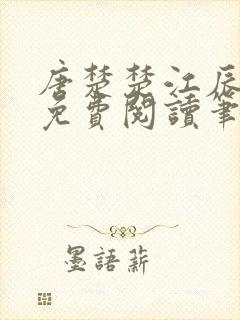 唐楚楚江辰
免費閱讀筆
墨語薪